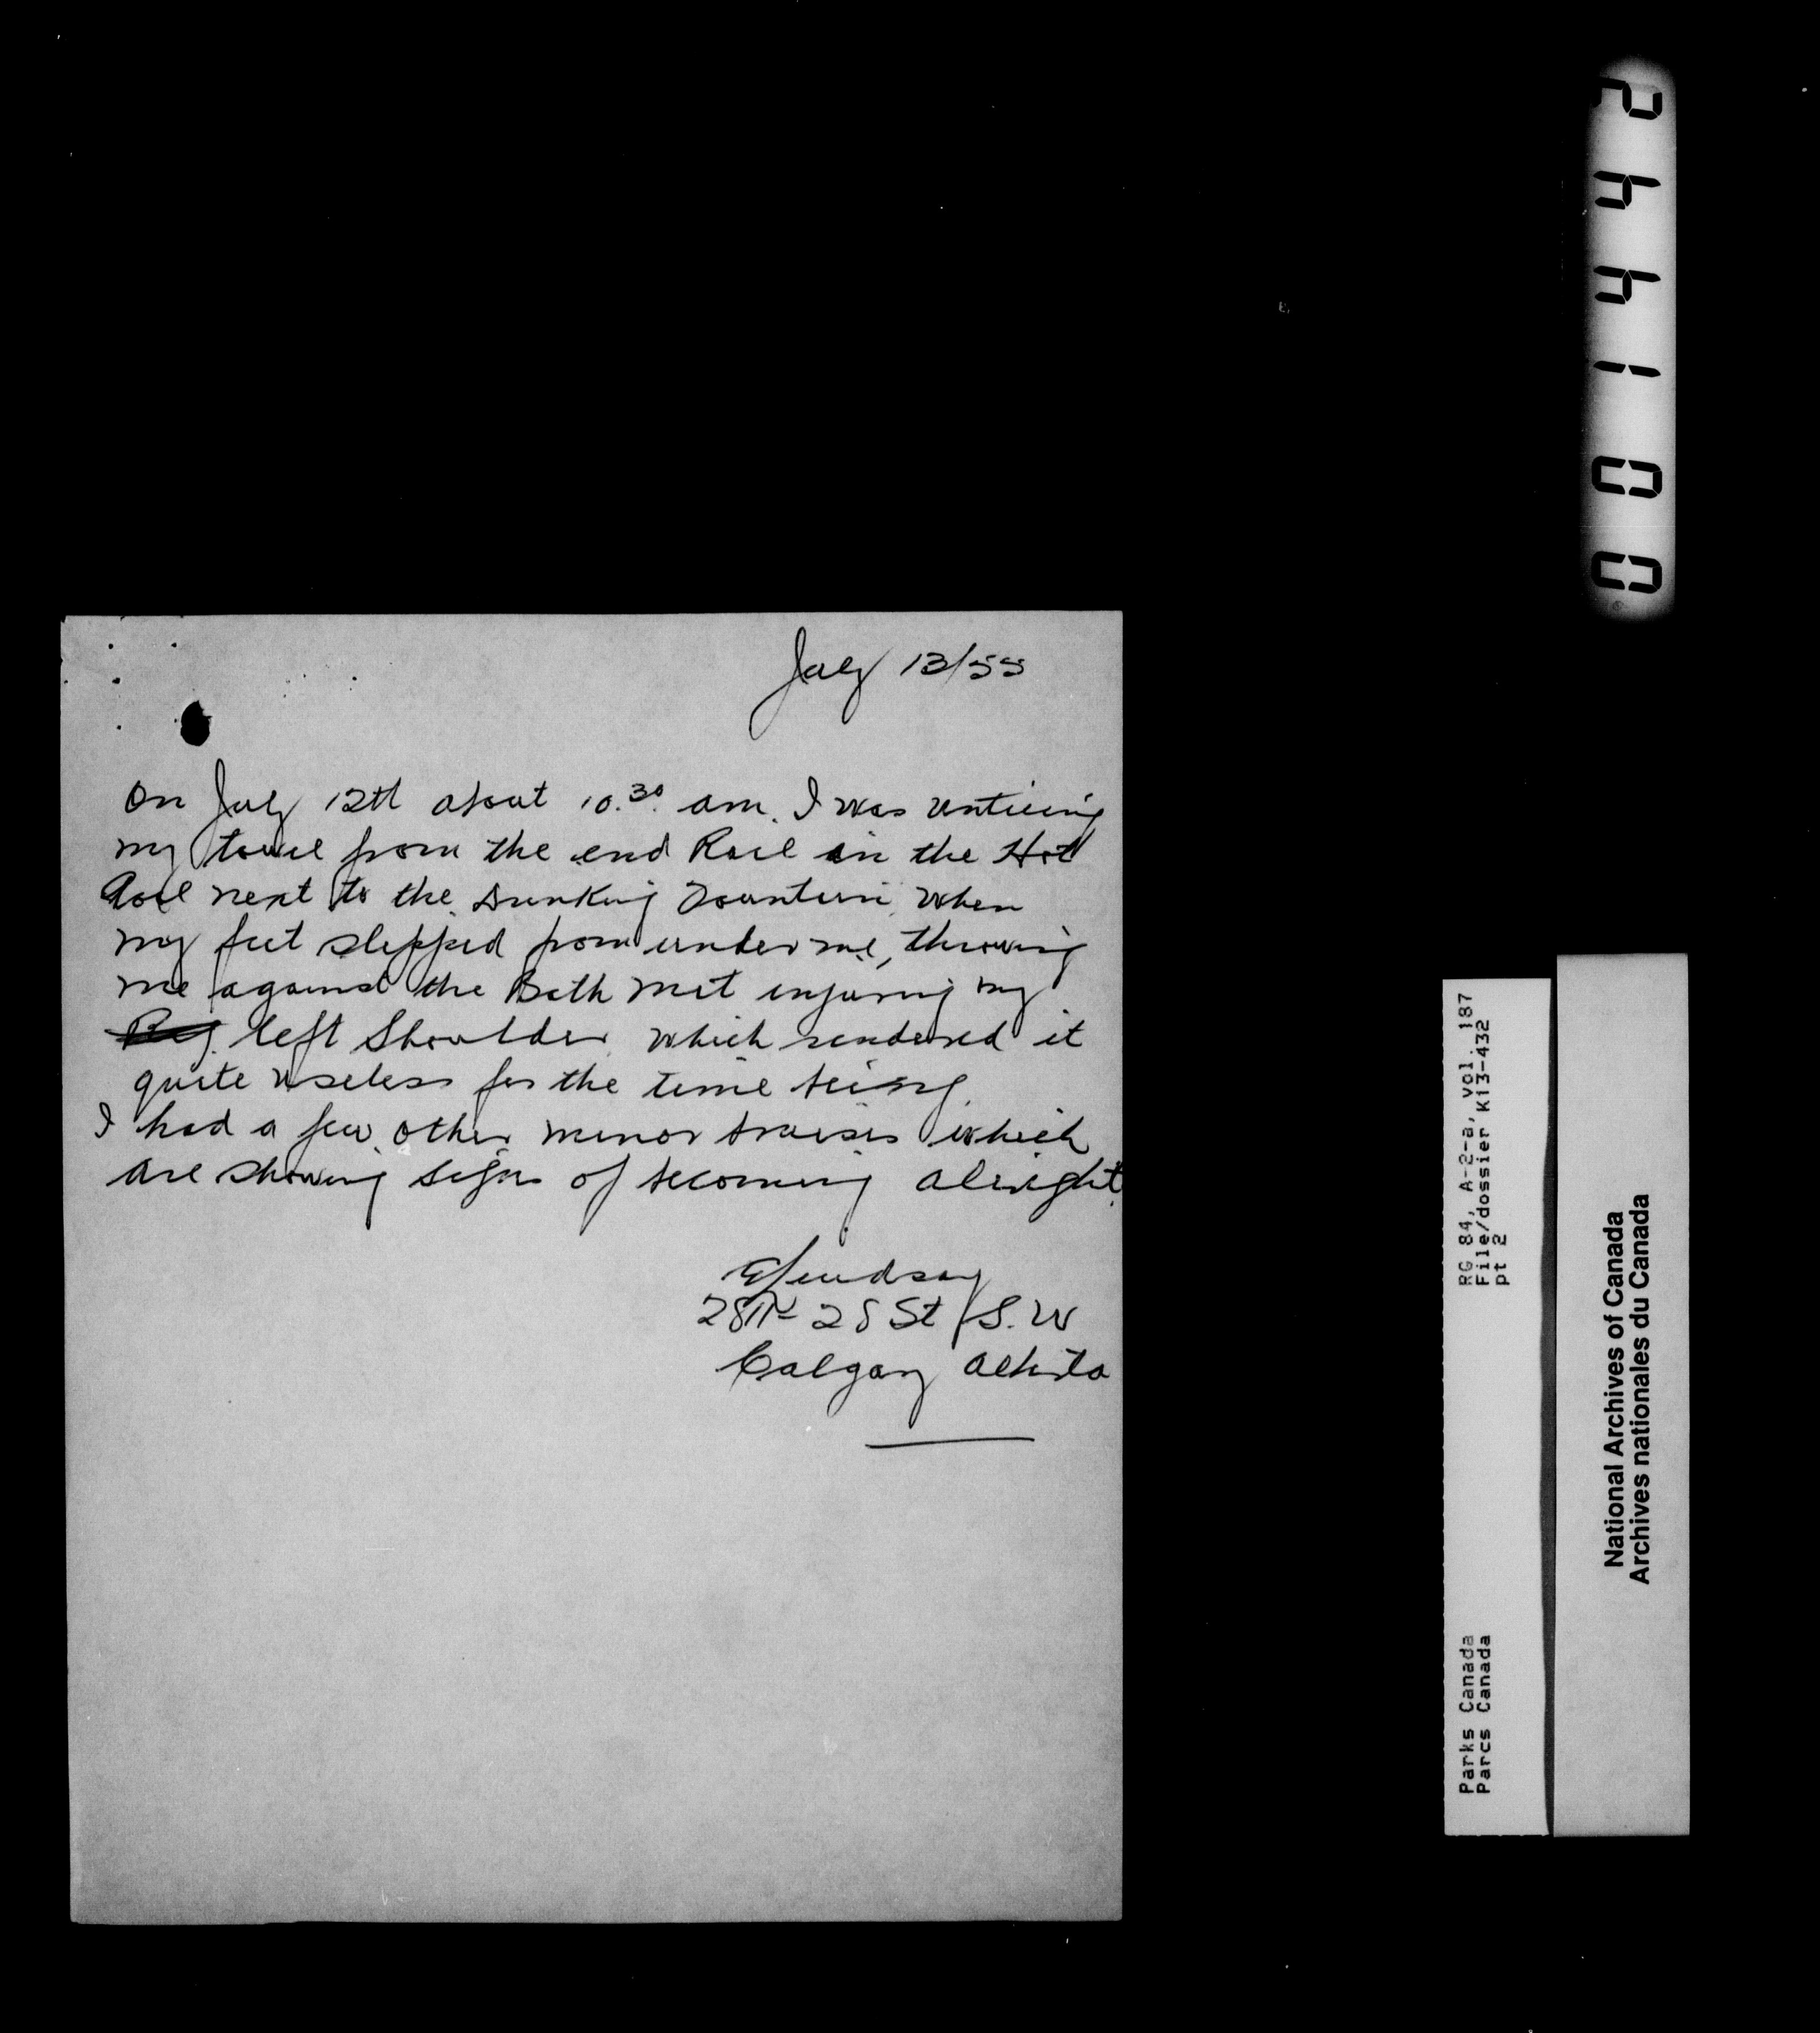 July 13/55
On July 12th about 10.30. am. I was untieing
my towel from the end Rail in the Hot
Pool next to the Drinking Fountain when
my feet slipped from under me, throwing
me against the Bath
injuring my
left Shoulder which rendered it
quite useless for the time being.
I had a few other minor bruises which
are showing signs of becoming alright.
E Lindsay
28 St S.W
Calgary Alberta
001442
RG 84, A-2-a, vol. 187
File/dossier K13-432
pt 2
Parks Canada
Parcs Canada
National Archives of Canada
Archives nationales du Canada